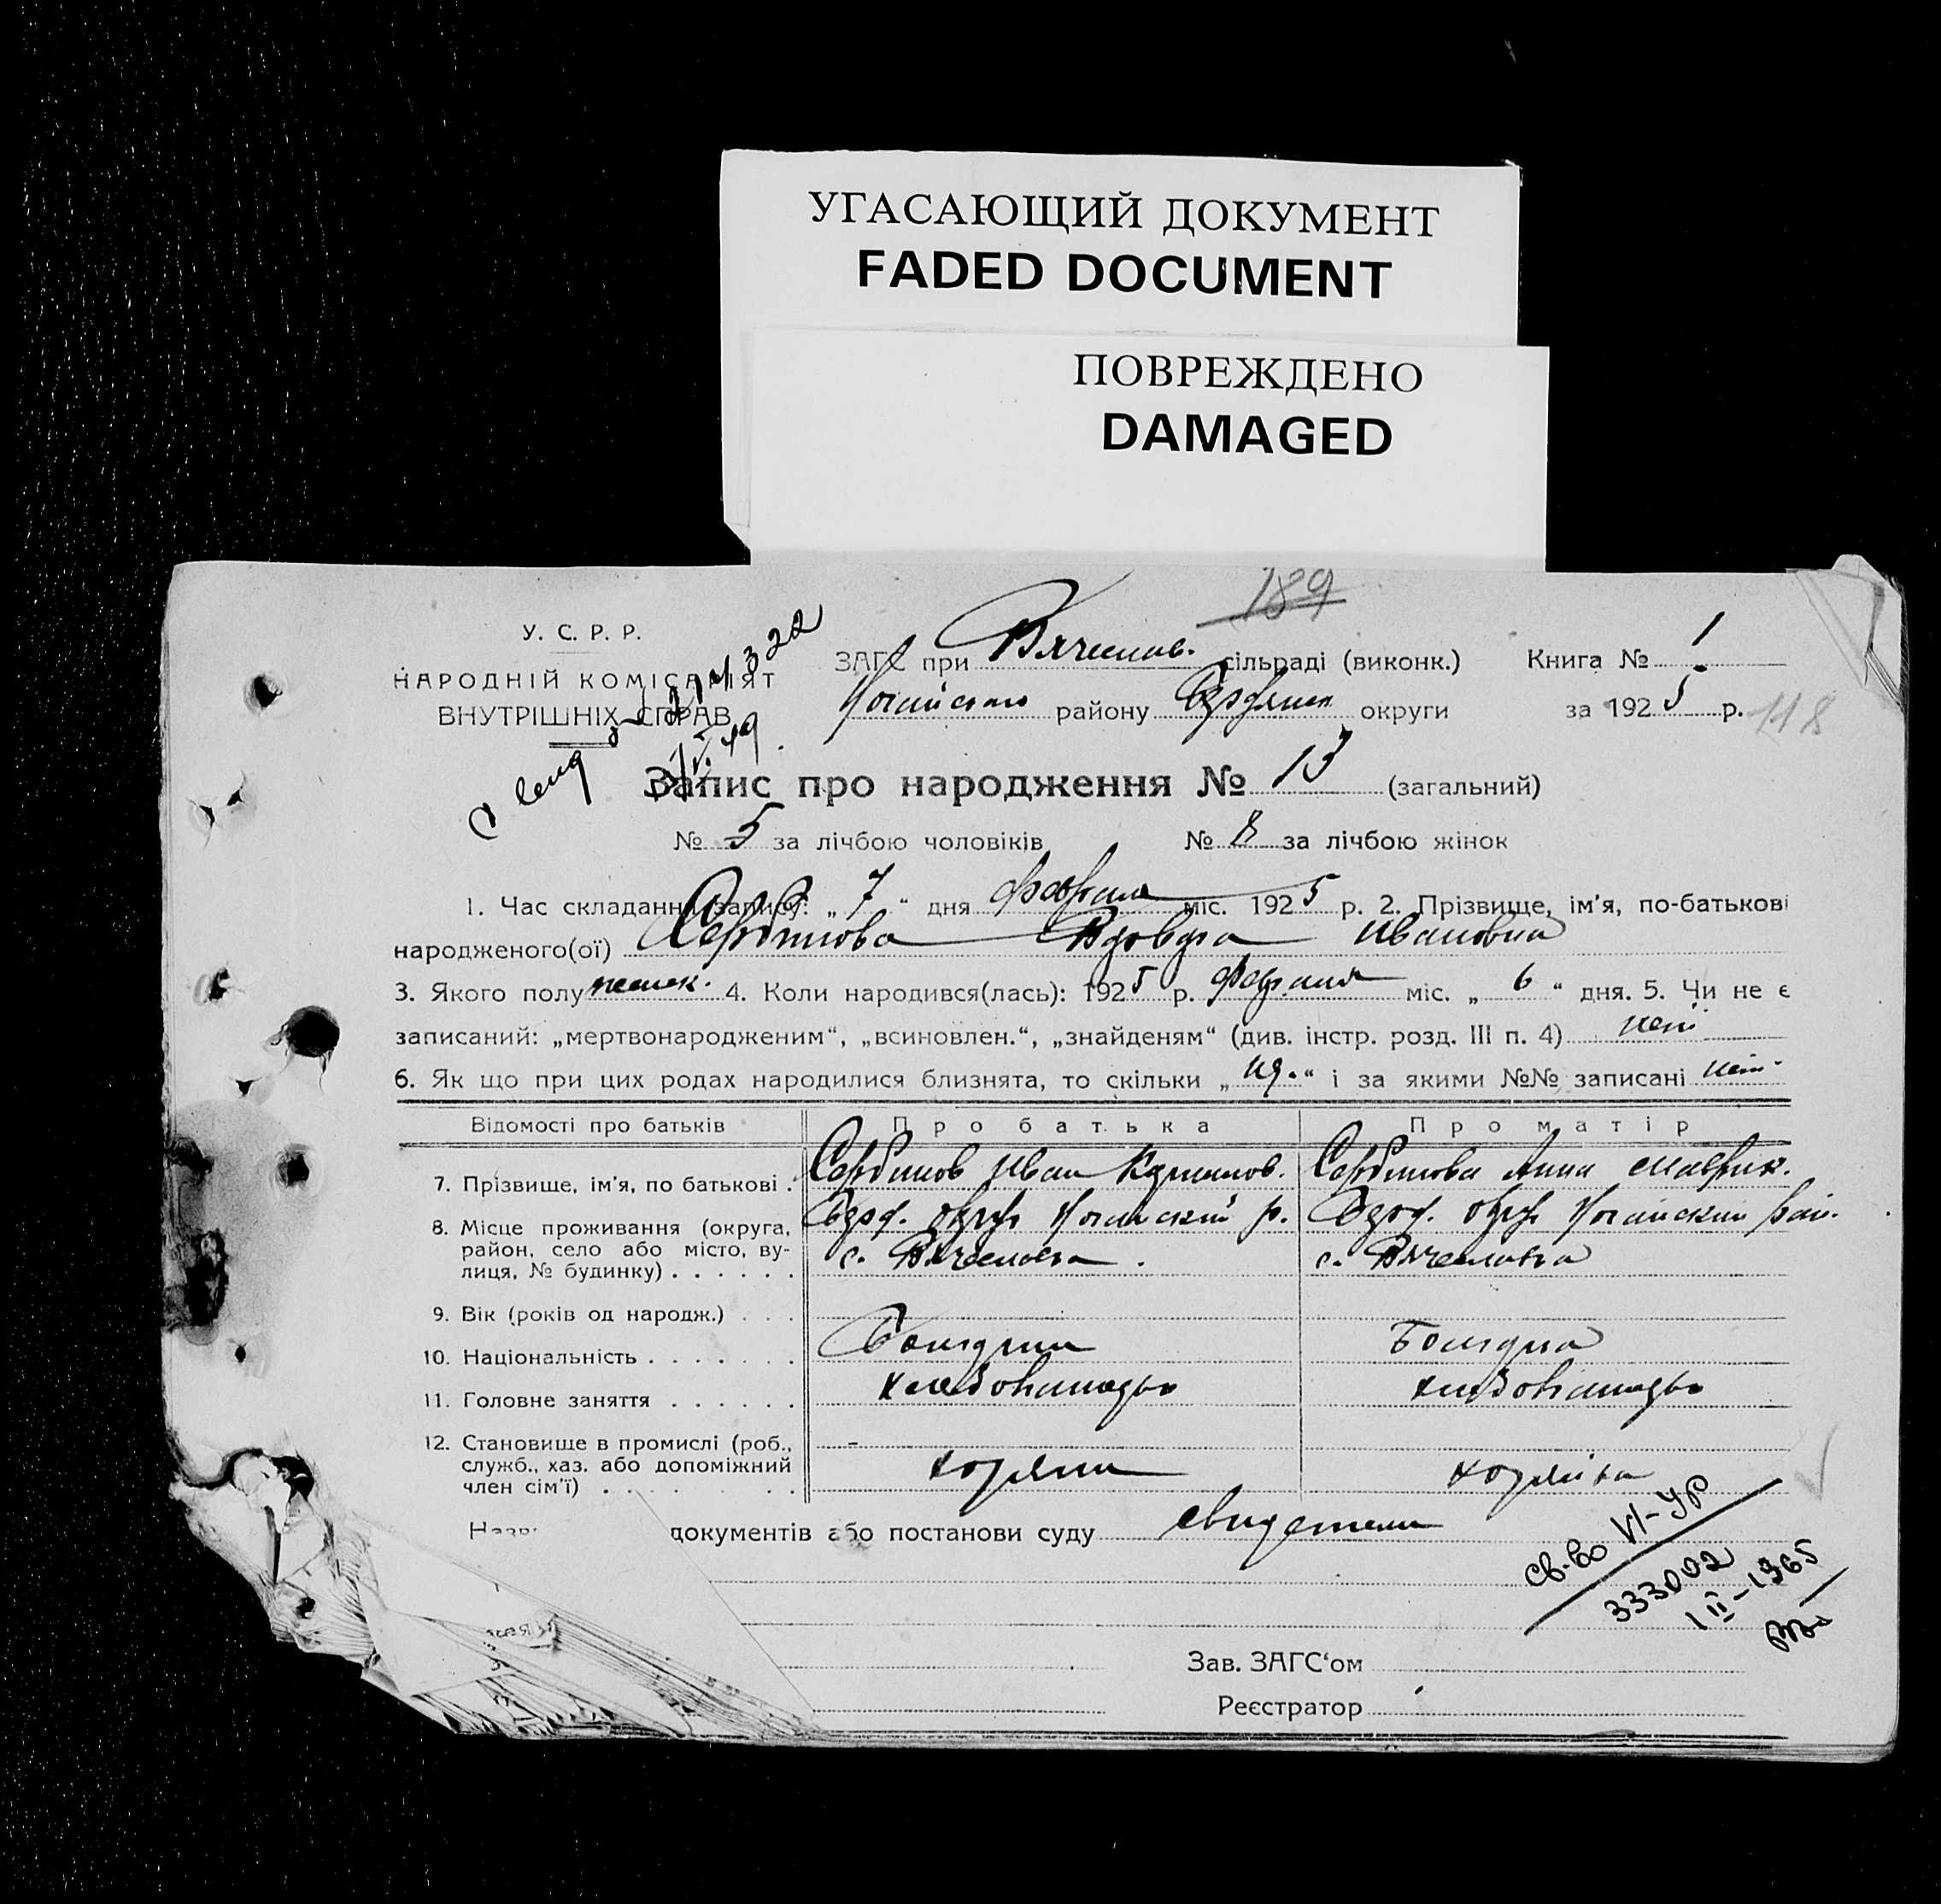 УГАСАЮЩИЙ ДОКУМЕНТ
FADED DOCUMENT
ПОВРЕЖДЕНО
DAMAGED
189
У. С. Р. Р.
НАРОДНІЙ КОМІСАРІЯТ
ВНУТРІШНІХ СПРАВ
ЗАГС при Вячеслав. сільраді (виконк.) Книга № 1
Ногайского району Бердянск округи за 1925 р. 118
Запис про народження № 13 (загальний)
№ 5 за лічбою чоловіків № 8 за лічбою жінок
1. Час складання запису: „7“ дня февраля міс. 1925 р. 2. Прізвище, ім'я, по-батькові
народженого(ої) Сербинова Ивановна
3. Якого полу женск. 4. Коли народився(лась): 1925 р. февраля міс. „6“ дня. 5. Чи не є
записаний: „мертвонародженим“, „всиновлен.“, „знайденям“ (див. інстр. розд. III п. 4) нет
6. Як що при цих родах народилися близнята, то скільки „ “ і за якими №№ записані нет
Відомості про батьків Про батька Про матір
7. Прізвище, ім'я, по батькові . Сербинов Иван Сербинова Анна
8. Місце проживання (округа, Берд. округ Ногайский р. Берд. округ Ногайский рай.
район, село або місто, ву- с. Вячеславка . с. Вячеславка
лиця, № будинку) . . . . . .
9. Вік (років од народж.) . . .
10. Національність . . . . . . . Болгарин Болгарка
11. Головне заняття . . . . . . хлебопашество хлебопашество
12. Становище в промислі (роб.,
служб., хаз. або допоміжний хозяин хозяйка
член сім'ї) . . . . . .
документів або постанови суду свидетели
св-во VI-УР
333002
1 II-1965
Зав. ЗАГС'ом
Реєстратор